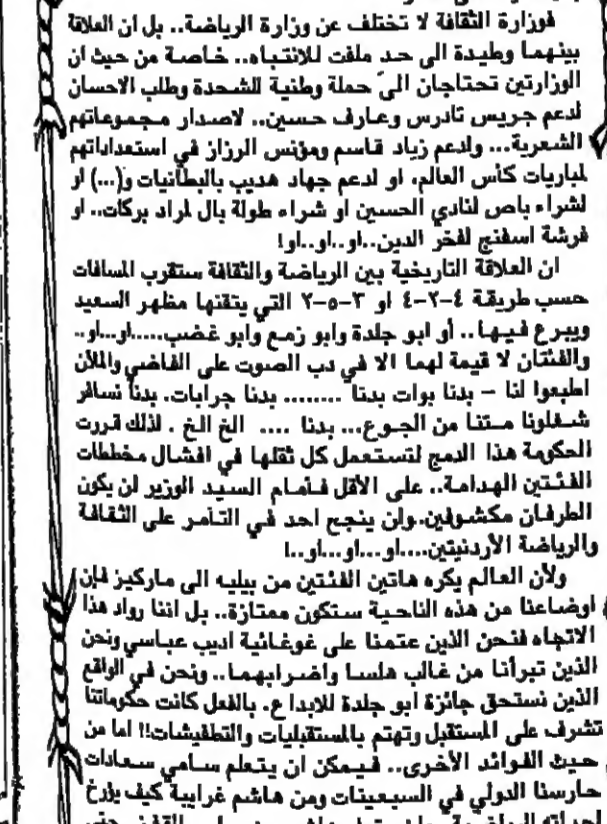 فوزارة الثقافة لا تختلف عن وزارة الرياضة.. بل ان العلاقة
بينهما وطيدة الى حد ملفت للانتباه.. خاصة من حيث ان
الوزارتين تحتاجان الىّ حملة وطنية للشحدة وطلب الاحسان
لدعم جريس تادرس وعارف حسين.. لاصدار مجموعاتهم
الشعرية... ولدعم زياد قاسم ومؤنس الرزاز في استعداداتهم
لمباريات كأس العالم، او لدعم جهاد هديب بالبطانيات و(...) او
لشراء باص لنادي الحسين او شراء طولة بال لمراد بركات.. او
فرشة اسفنج لفخر الدين..او..او..او!
ان العلاقة التاريخية بين الرياضة والثقافة ستقرب المسافات
حسب طريقة ٤-٢-٤ او ٣-٥-٢ التي يتقنها مظهر السعيد
ويبرع فيها.. أو ابو جلدة وابو زمع وابو غضب.....او...او..
والفئتان لا قيمة لهما الا في دب الصوت على الفاضي والملآن
اطبعوا لنا – بدنا بوات بدنا ........ بدنا جرابات. بدنا نسافر
شغلونا متنا من الجوع... بدنا .... الخ الخ . لذلك قررت
الحكومة هذا الدمج لتستعمل كل ثقلها في افشال مخططات
الفئتين الهدامة.. على الأقل فأمام السيد الوزير لن يكون
الطرفان مكشوفين.ولن ينجح احد في التآمر على الثقافة
والرياضة الأردنيتين....او...او...او..!
ولأن العالم يكره هاتين الفئتين من بيليه الى ماركيز فإن
اوضاعنا من هذه الناحية ستكون ممتازة.. بل اننا رواد هذا
الاتجاه فنحن الذين عتمنا على غوغائية اديب عباسي ونحن
الذين تبرأنا من غالب هلسا واضرابهما.. ونحن في الواقع
الذين نستحق جائزة ابو جلدة للابداع. بالفعل كانت حكوماتنا
تشرف على المستقبل وتهتم بالمستقبليات والتطفيشات!! اما من
حيث الفوائد الأخرى.. فيمكن ان يتعلم سامي سعادات
حارسنا الدولي في السبعينات ومن هاشم غرايبة كيف يؤرخ